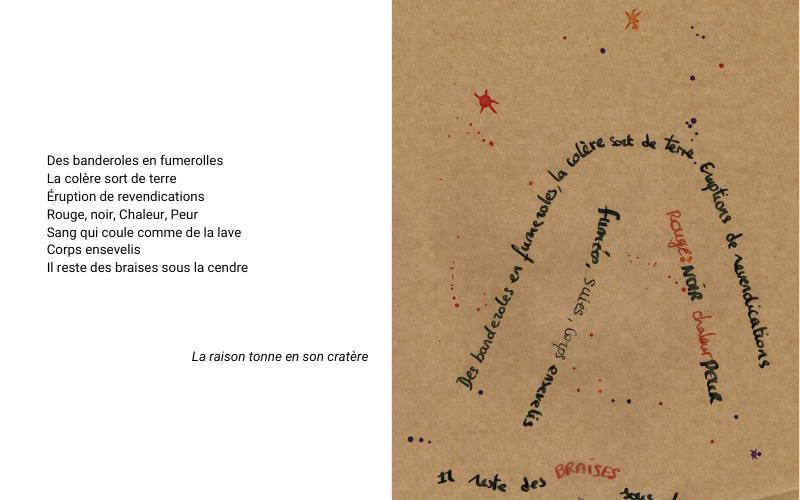 Des banderoles en fumerolles
La colère sort de terre
Éruption de revendications
Rouge, noir, Chaleur, Peur
Sang qui coule comme de la lave
Corps ensevelis
Il reste des braises sous la cendre
La raison tonne en son cratère
Des banderoles en fumeroles, la colère sort de terre. Eruptions de revendications
fumées, suies, Corps ensevelis
Rouges NOIR chaleur PEUR
Il reste des BRAISES
sous